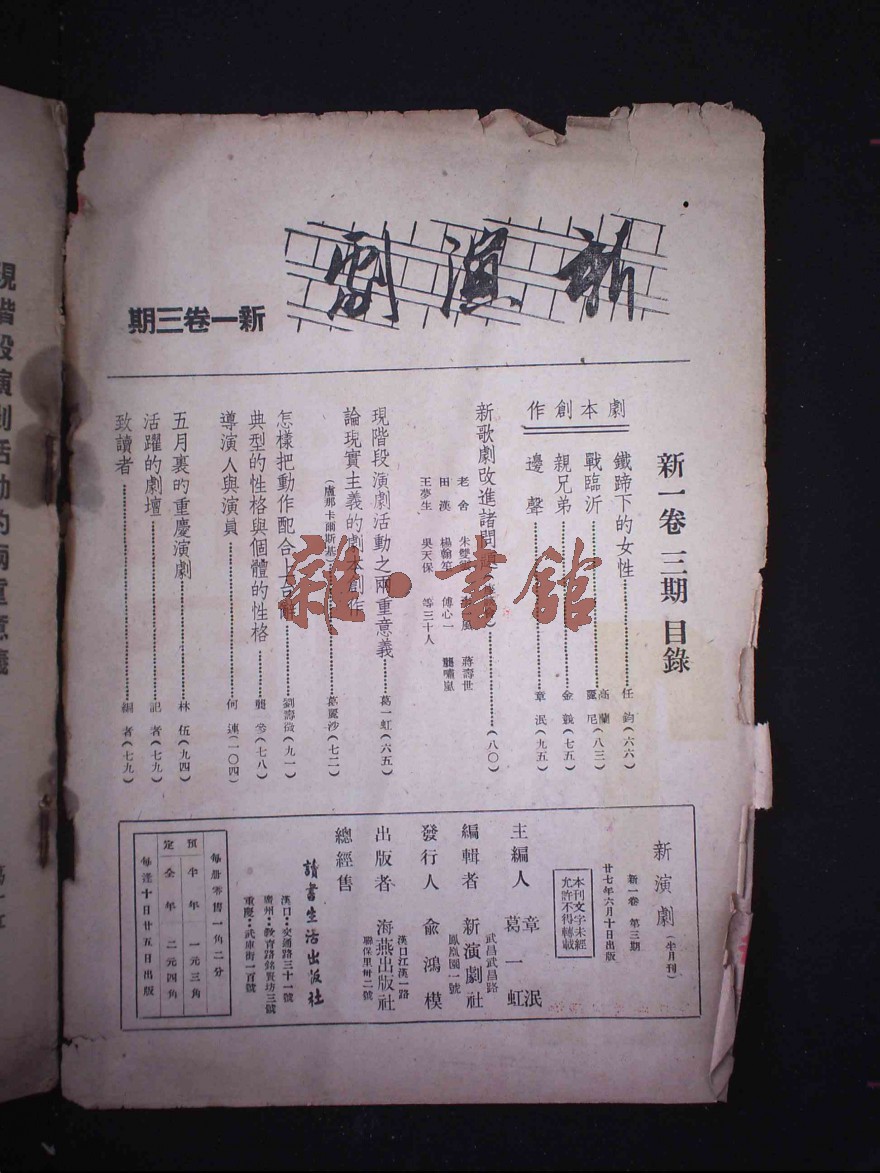 新演劇
新一卷三期
新一卷 三期 目錄
劇本創作
鐵蹄下的女性 任 鈞(六六)
戰臨沂 高 蘭 麗 尼(八三)
親兄弟 金 (七五)
邊聲 章 泯(九五)
新歌劇改進諸問題 (八〇)
老 舍 朱雙 蔣壽世
田 漢 楊翰笙 傅心一 龔嘯嵐
王夢生 吳天保 等三十人
現階段演劇活動之兩重意義 葛一虹(六五)
論現實主義的劇本創作
(盧那卡爾斯基 葛麗沙(七二)
怎樣把動作配合上台辭 劉壽 (九一)
典型的性格與個體的性格 (七八)
導演人與演員 何 連(一〇四)
五月裏的重慶演劇 林 伍(九四)
活躍的劇壇 記 者(七九)
致讀者 編 者(七九)
新演劇(半月刊)
新一卷 第三期
廿七年六月十日出版
本刊文字未經
允許不得轉載
主編人 章 泯
葛一虹
編輯者 新演劇社
武昌武昌路
鳳凰園一號
發行人 俞鴻模
出版者 海燕出版社
漢口江漢一路
聯保里卅二號
總經售
讀書生活出版社
漢口：交通路三十一號
廣州：教育路銘賢坊三號
重慶：武庫街一百號
每册零售一角二分
預定
半年 一元三角
全年 二元四角
每逢十日廿五日出版
雜·書館
現階段演劇活動的兩重意義
葛一虹